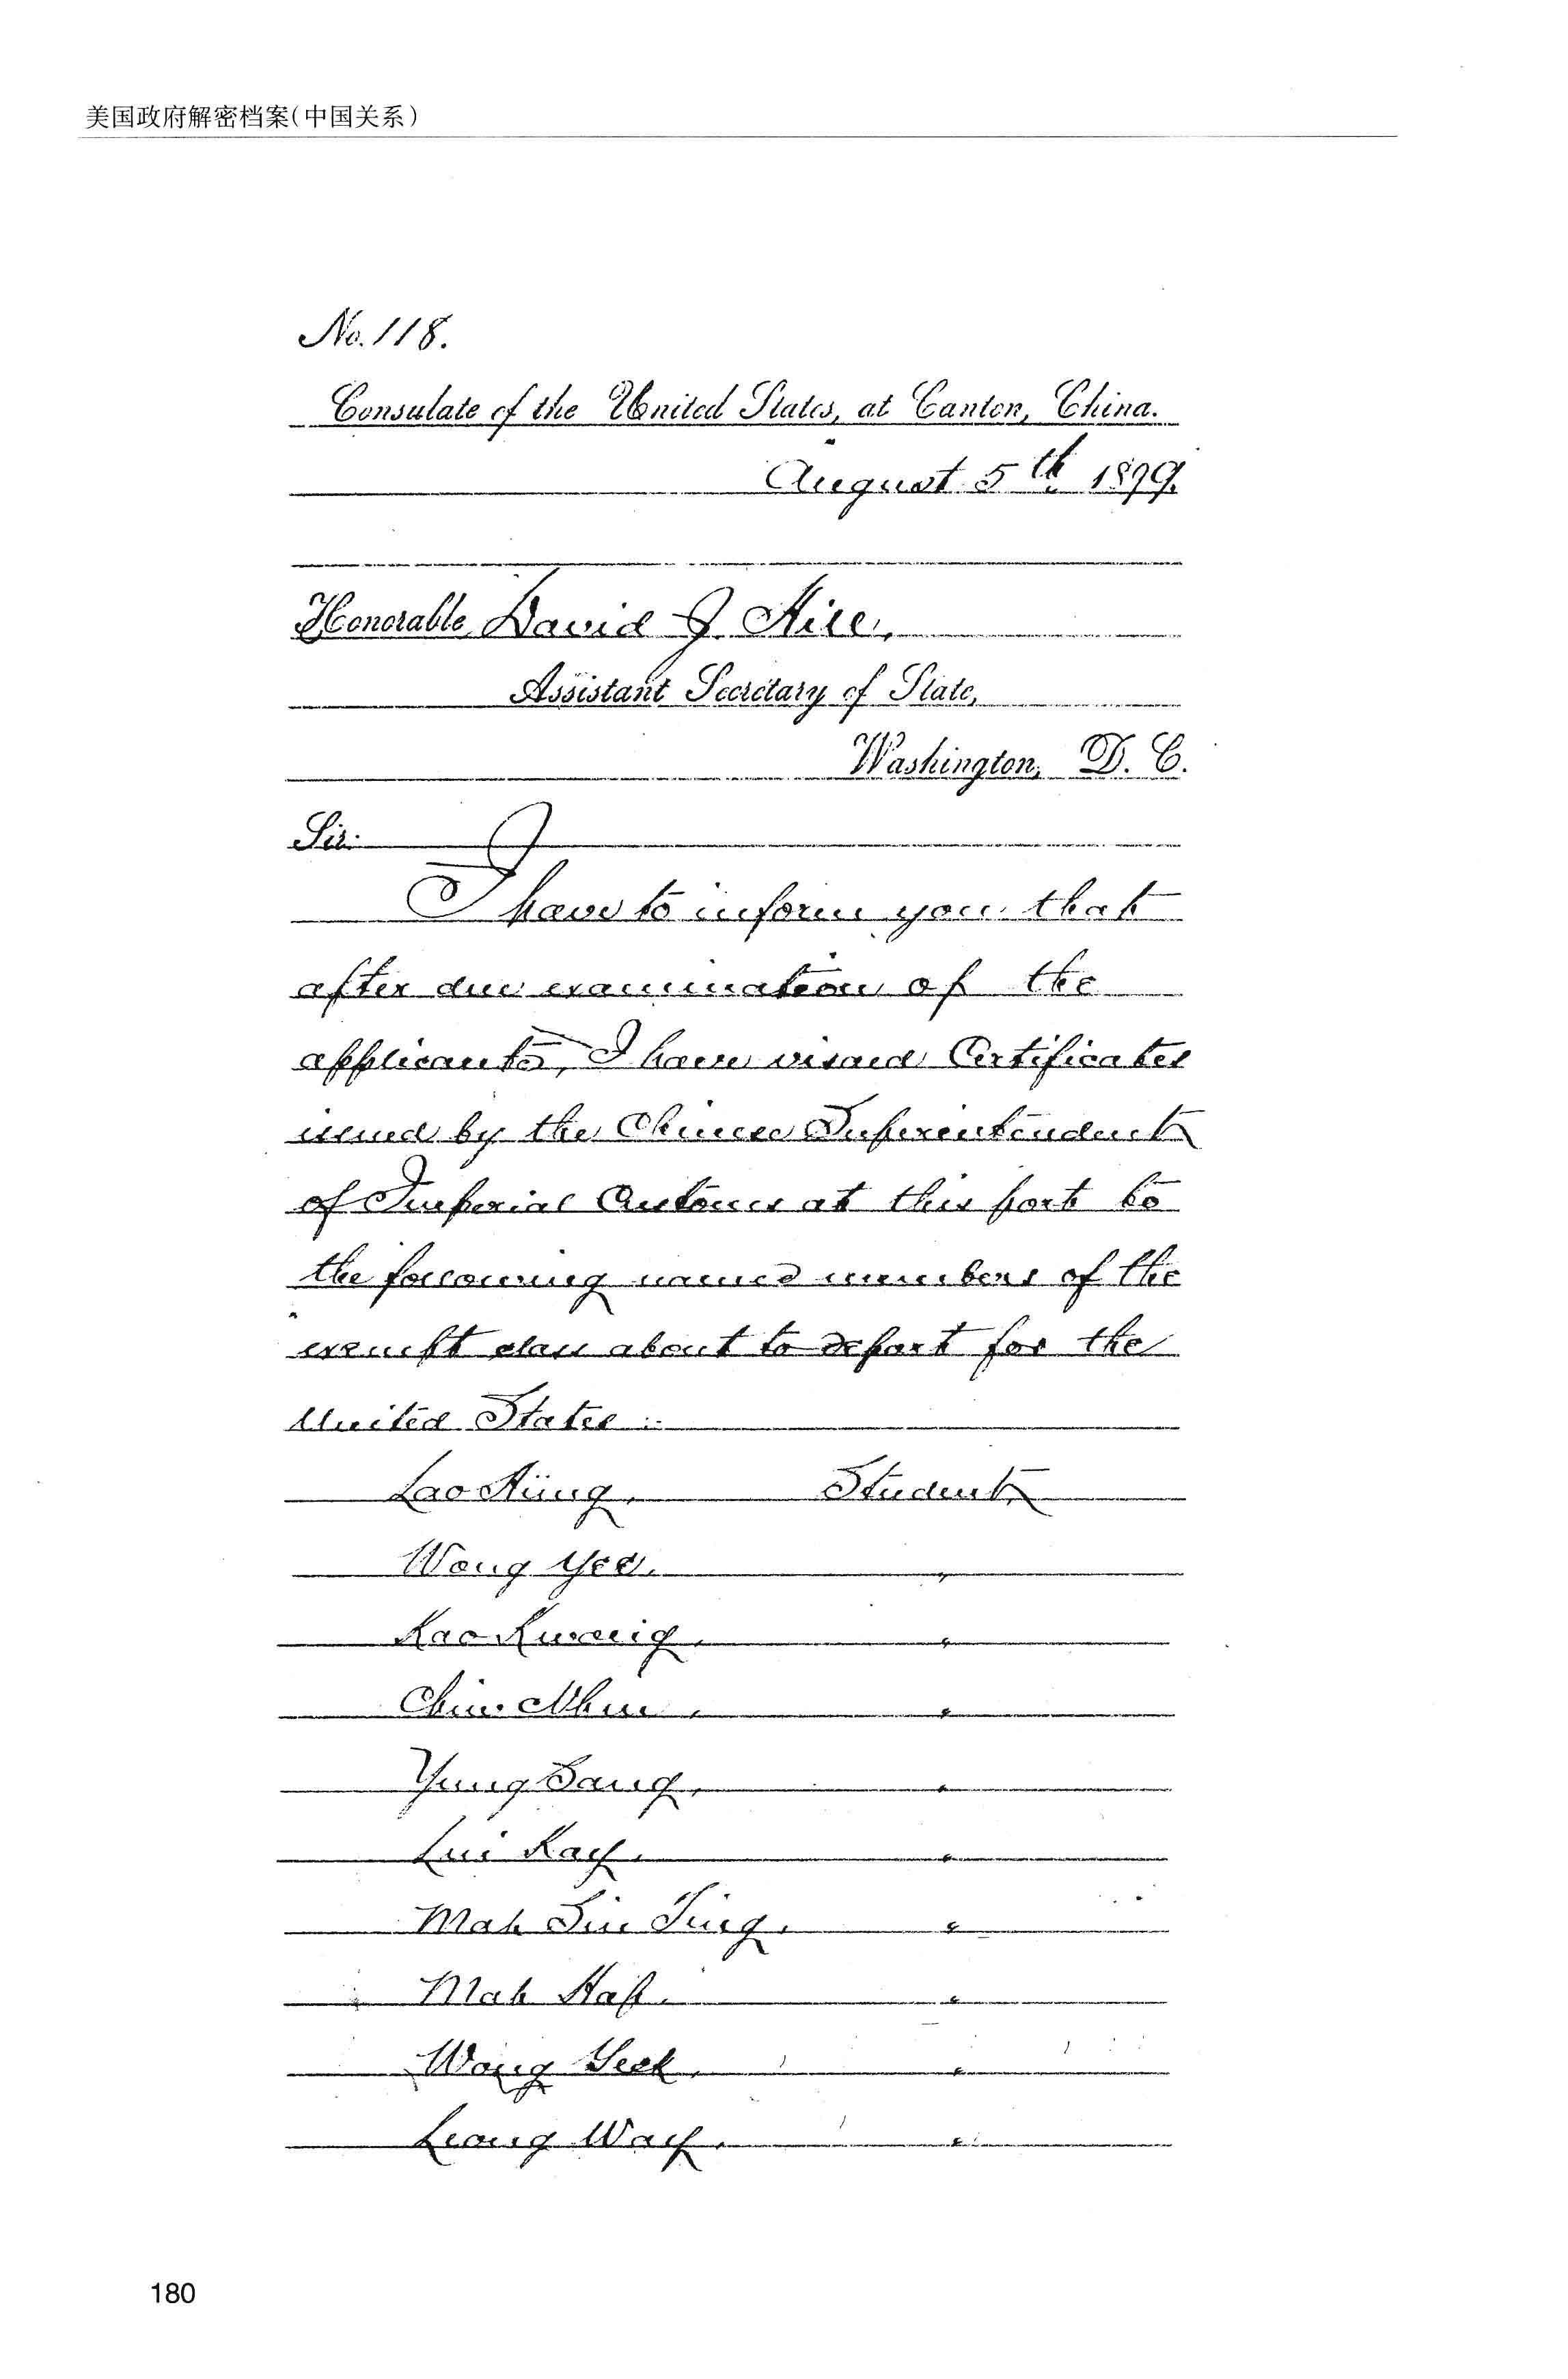 美国政府解密档案(中国关系)
No. 118.
Consulate of the United States, at Canton, China.
August 5th 1899.
Honorable David J. Hill,
Assistant Secretary of State,
Washington, D. C.
Sir:
I have to inform you that
after due examination of the
applicants, I have visaed Certificates
issued by the Chinese Superintendent
of Imperial Customs at this port to
the following named members of the
exempt class about to depart for the
United States :
Lao Hüng, Student,
Wong Yee, "
Kao Kwong, "
Chin Nhin, "
Yung Sang, "
Lui Kay, "
Mah Sin Ting, "
Mah Hap, "
Wong Yeek, "
Leong Way, "
180